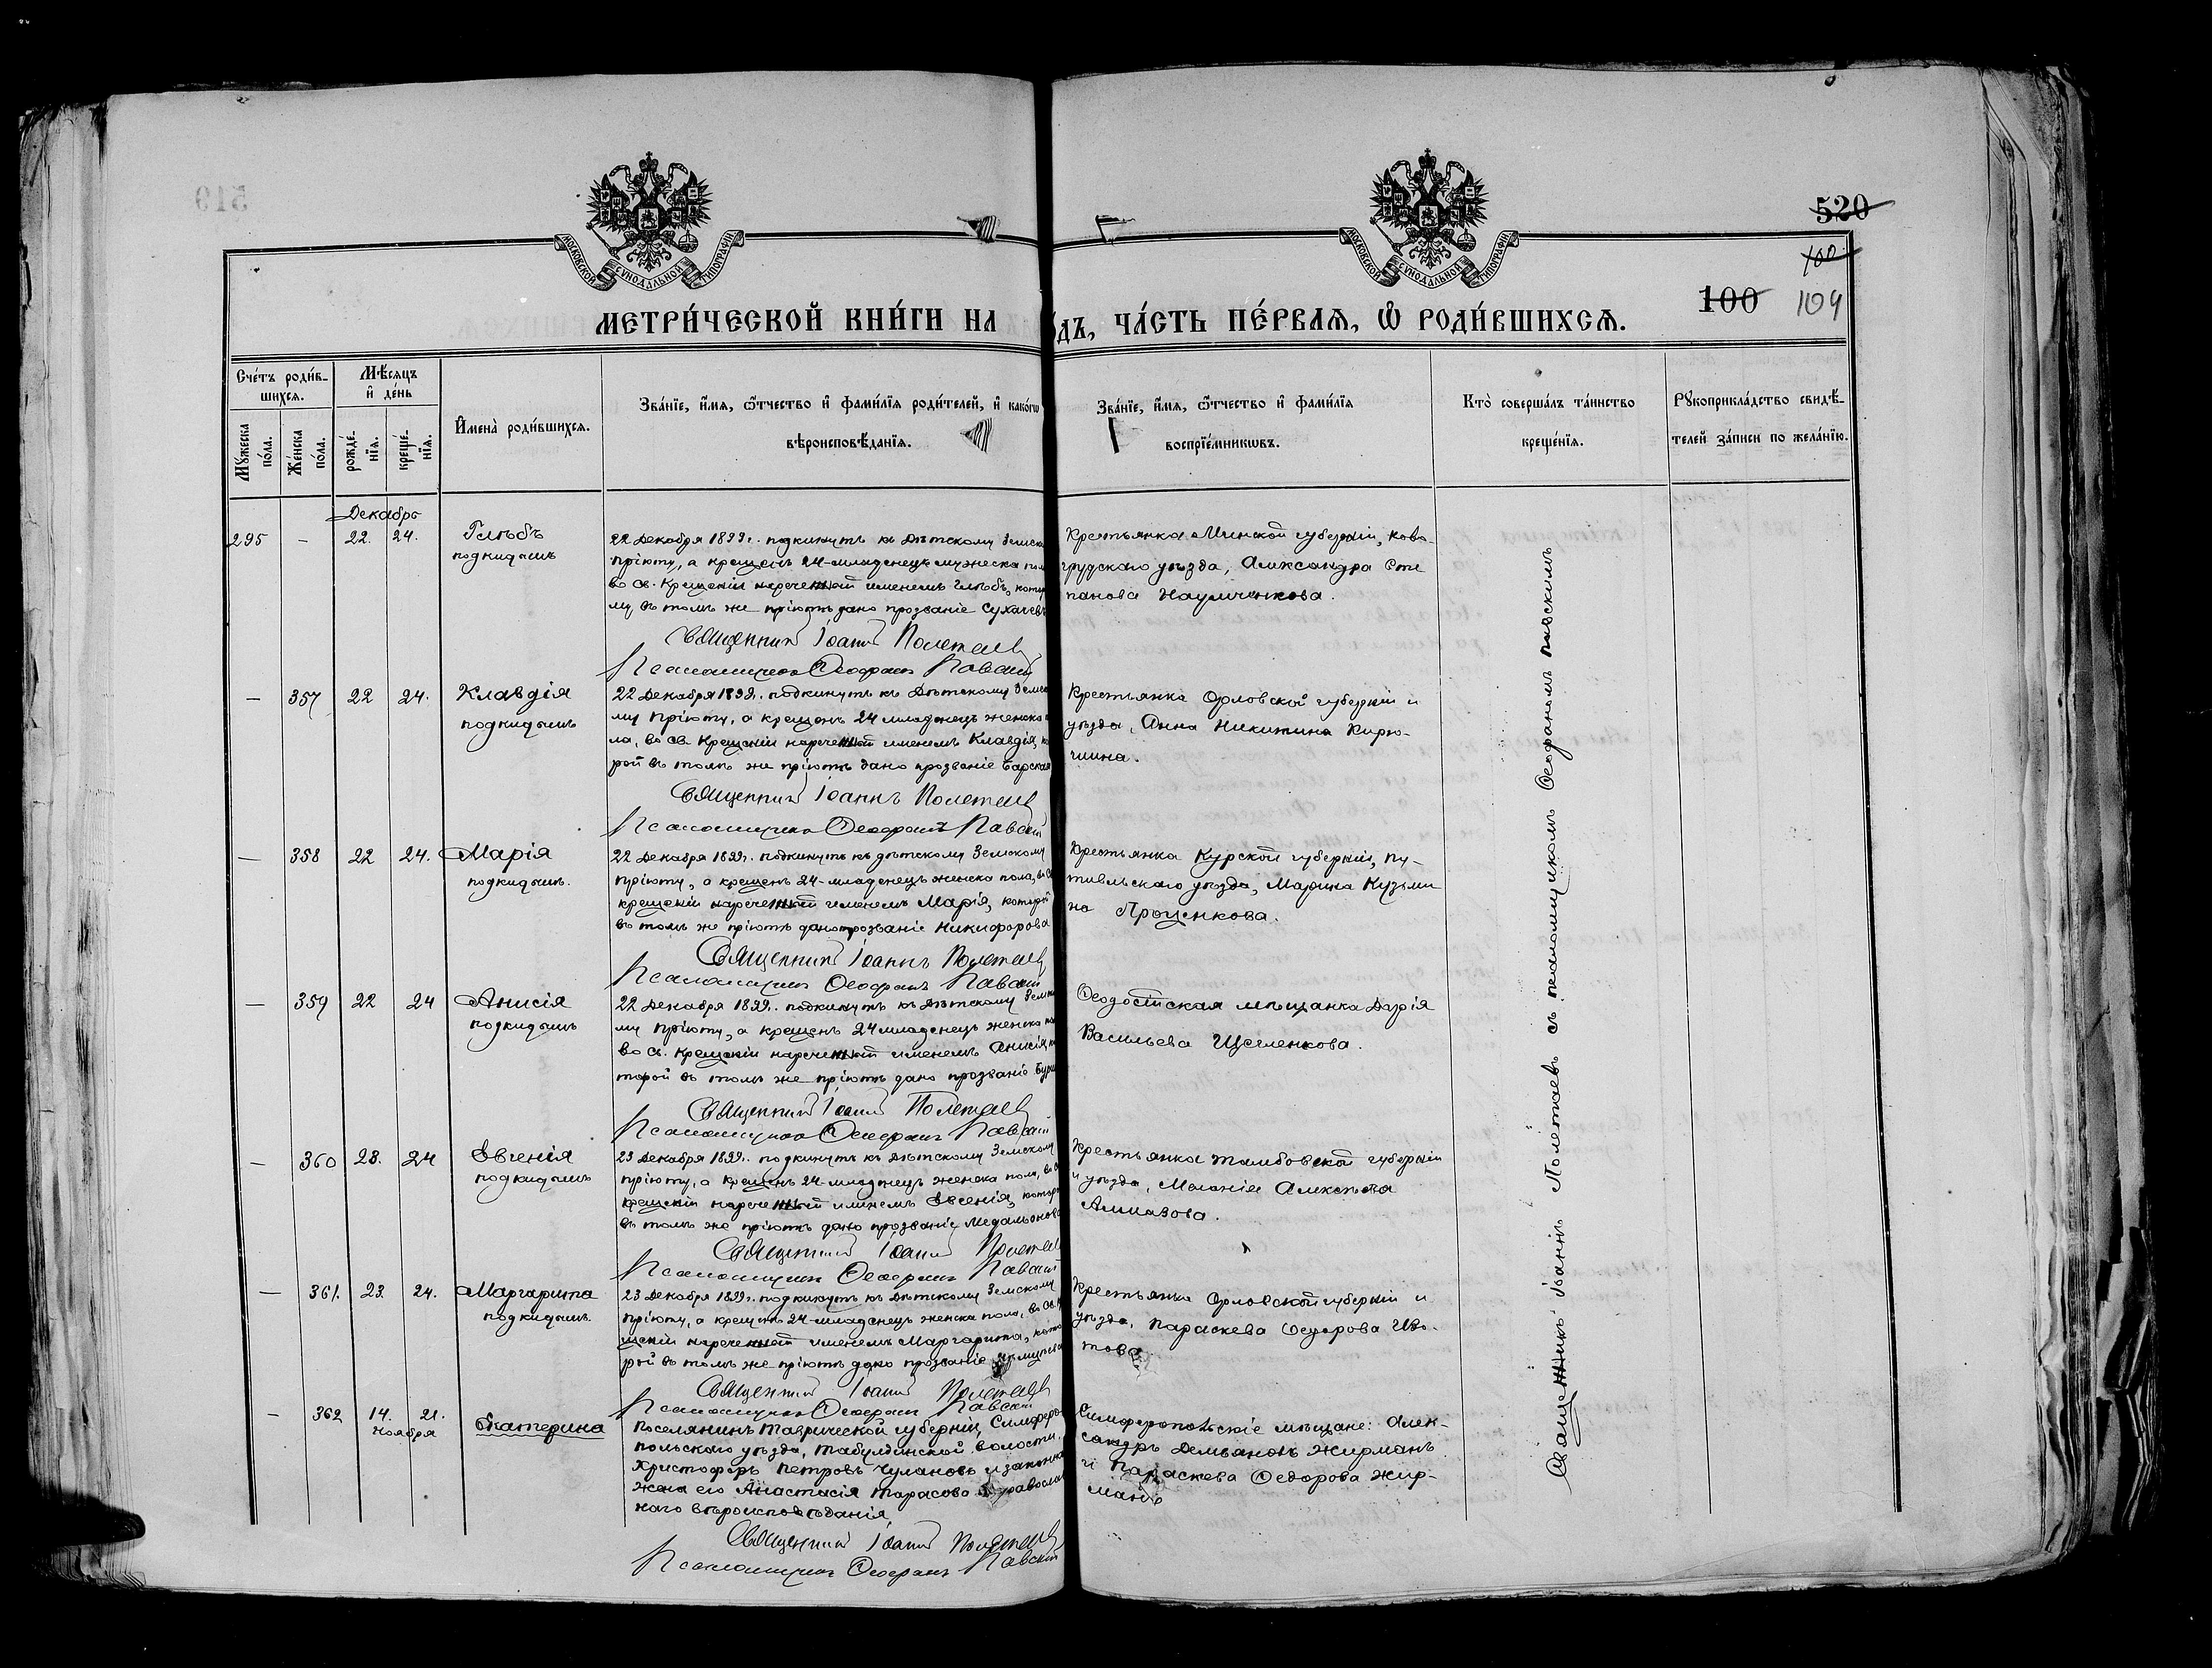 520
100
100 104
МОСКОВСКОЙ СѴНОДАЛЬНОЙ ТИПОГРАФІИ
МОСКОВСКОЙ СѴНОДАЛЬНОЙ ТИПОГРАФІИ
МЕТРИ́ЧЕСКОЙ КНИ́ГИ НА
ДЪ, ЧА́СТЬ ПЕ́РВАѦ, Ѡ РОДИ́ВШИХСѦ.
Сче́тъ роди́в-
шихсѧ.
Му́жеска по́ла.
Же́нска по́ла.
Мѣ́сѧцъ
и҆ де́нь
рожде́-
нїѧ.
креще́-
нїѧ.
И҆мена̀ роди́вшихсѧ.
Зва́нїе, и҆́мѧ, ѻ҆́тчество и҆ фами́лїѧ роди́телей, и҆ како́гѡ
вѣроисповѣ́данїѧ.
Зва́нїе, и҆́мѧ, ѻ҆́тчество и҆ фами́лїѧ
воспрїе́мникѡвъ.
Кто̀ соверша́лъ та́инство
креще́нїѧ.
Рꙋкоприкла́дство свидѣ́-
телей за́писи по жела́нїю.
Декабрь
295 — 22. 24. Глѣбъ
подкидышъ
22 Декабря 1899 г. подкинутъ къ Дѣтскому Земско
Пріюту, а крещенъ 24 младенецъ мужеска пол
во св. Крещеніи нареченный именемъ Глѣбъ, котор
му въ томъ же пріютѣ дано прозваніе Сухачевъ
Священникъ Іоаннъ Полетаевъ
Псаломщикъ Ѳеофанъ Павскій
Крестьянка Минской губерніи, Ново-
грудскаго уѣзда, Александра Сте
панова Наумчикова.
— 357 22 24. Клавдія
подкидышъ
22 Декабря 1899 г. подкинутъ къ Дѣтскому Земско
му Пріюту, а крещенъ 24 младенецъ женска
ла, во св. Крещеніи нареченный именемъ Клавдія, ко
рой въ томъ же пріютѣ дано прозваніе Барская
Священникъ Іоаннъ Полетаевъ
Псаломщикъ Ѳеофанъ Павскій
Крестьянка Орловской губерніи и
уѣзда, Анна Никитина Кирю-
шина.
— 358 22 24. Марія
подкидышъ.
22 Декабря 1899 г. подкинутъ къ дѣтскому Земскому
Пріюту, а крещенъ 24 младенецъ женска пола, во св
крещеніи нареченный именемъ Марія, которой
въ томъ же пріютѣ дано прозваніе Никифорова
Священникъ Іоаннъ Полетаевъ
Псаломщикъ Ѳеофанъ Павскій
Крестьянка Курской губерніи, Пу-
тивльскаго уѣзда, Марина Кузьми
на Проценкова.
— 359 22 24 Анисія
подкидышъ
22 Декабря 1899 г. подкинутъ къ Дѣтскому Земско
му Пріюту, а крещенъ 24 младенецъ женска по
во св. крещеніи нареченный именемъ Анисія, ко
торой въ томъ же пріютѣ дано прозваніе
Священникъ Іоаннъ Полетаевъ
Псаломщикъ Ѳеофанъ Павскій
Ѳеодосійская мѣщанка Дарія
Васильева Щегленкова.
— 360 23. 24 Евгенія
подкидышъ
23 Декабря 1899 г. подкинутъ къ Дѣтскому Земскому
пріюту, а крещенъ 24 младенецъ женска пола, во с
крещеніи нареченный именемъ Евгенія, котор
въ томъ же пріютѣ дано прозваніе Медальонова
Священникъ Іоаннъ Полетаев
Псаломщикъ Ѳеофанъ Павскій
Крестьянка Тамбовской губерніи
и уѣзда, Меланія Алексѣева
Алмазова.
— 361. 23. 24. Маргарита
подкидышъ.
23 Декабря 1899 г. подкинутъ къ Дѣтскому Земскому
пріюту, а крещенъ 24 младенецъ женска пола, во св. к
щеніи нареченный именемъ Маргарита, кото
рой въ томъ же пріютѣ дано прозваніе
Священникъ Іоаннъ Полетаевъ
Псаломщикъ Ѳеофанъ Павскій
Крестьянка Орловской губерніи и
уѣзда, Параскева Ѳедорова Изо-
това.
— 362 14. 21. Екатерина
Ноября
Поселянинъ Таврической губерніи, Симферо-
польскаго уѣзда, Табулдинской волости,
Христофоръ Петровъ Чулановъ и законна
жена его Анастасія Тарасова православ
наго вѣроисповѣданія
Священникъ Іоаннъ Полетаевъ
Псаломщикъ Ѳеофанъ Павскій
Симферопольскіе мѣщане: Алек-
сандръ Демьяновъ Жирманъ
и Параскева Ѳедорова Жир-
манъ
Священникъ Іоаннъ Полетаевъ съ псаломщикомъ Ѳеофаномъ Павскимъ